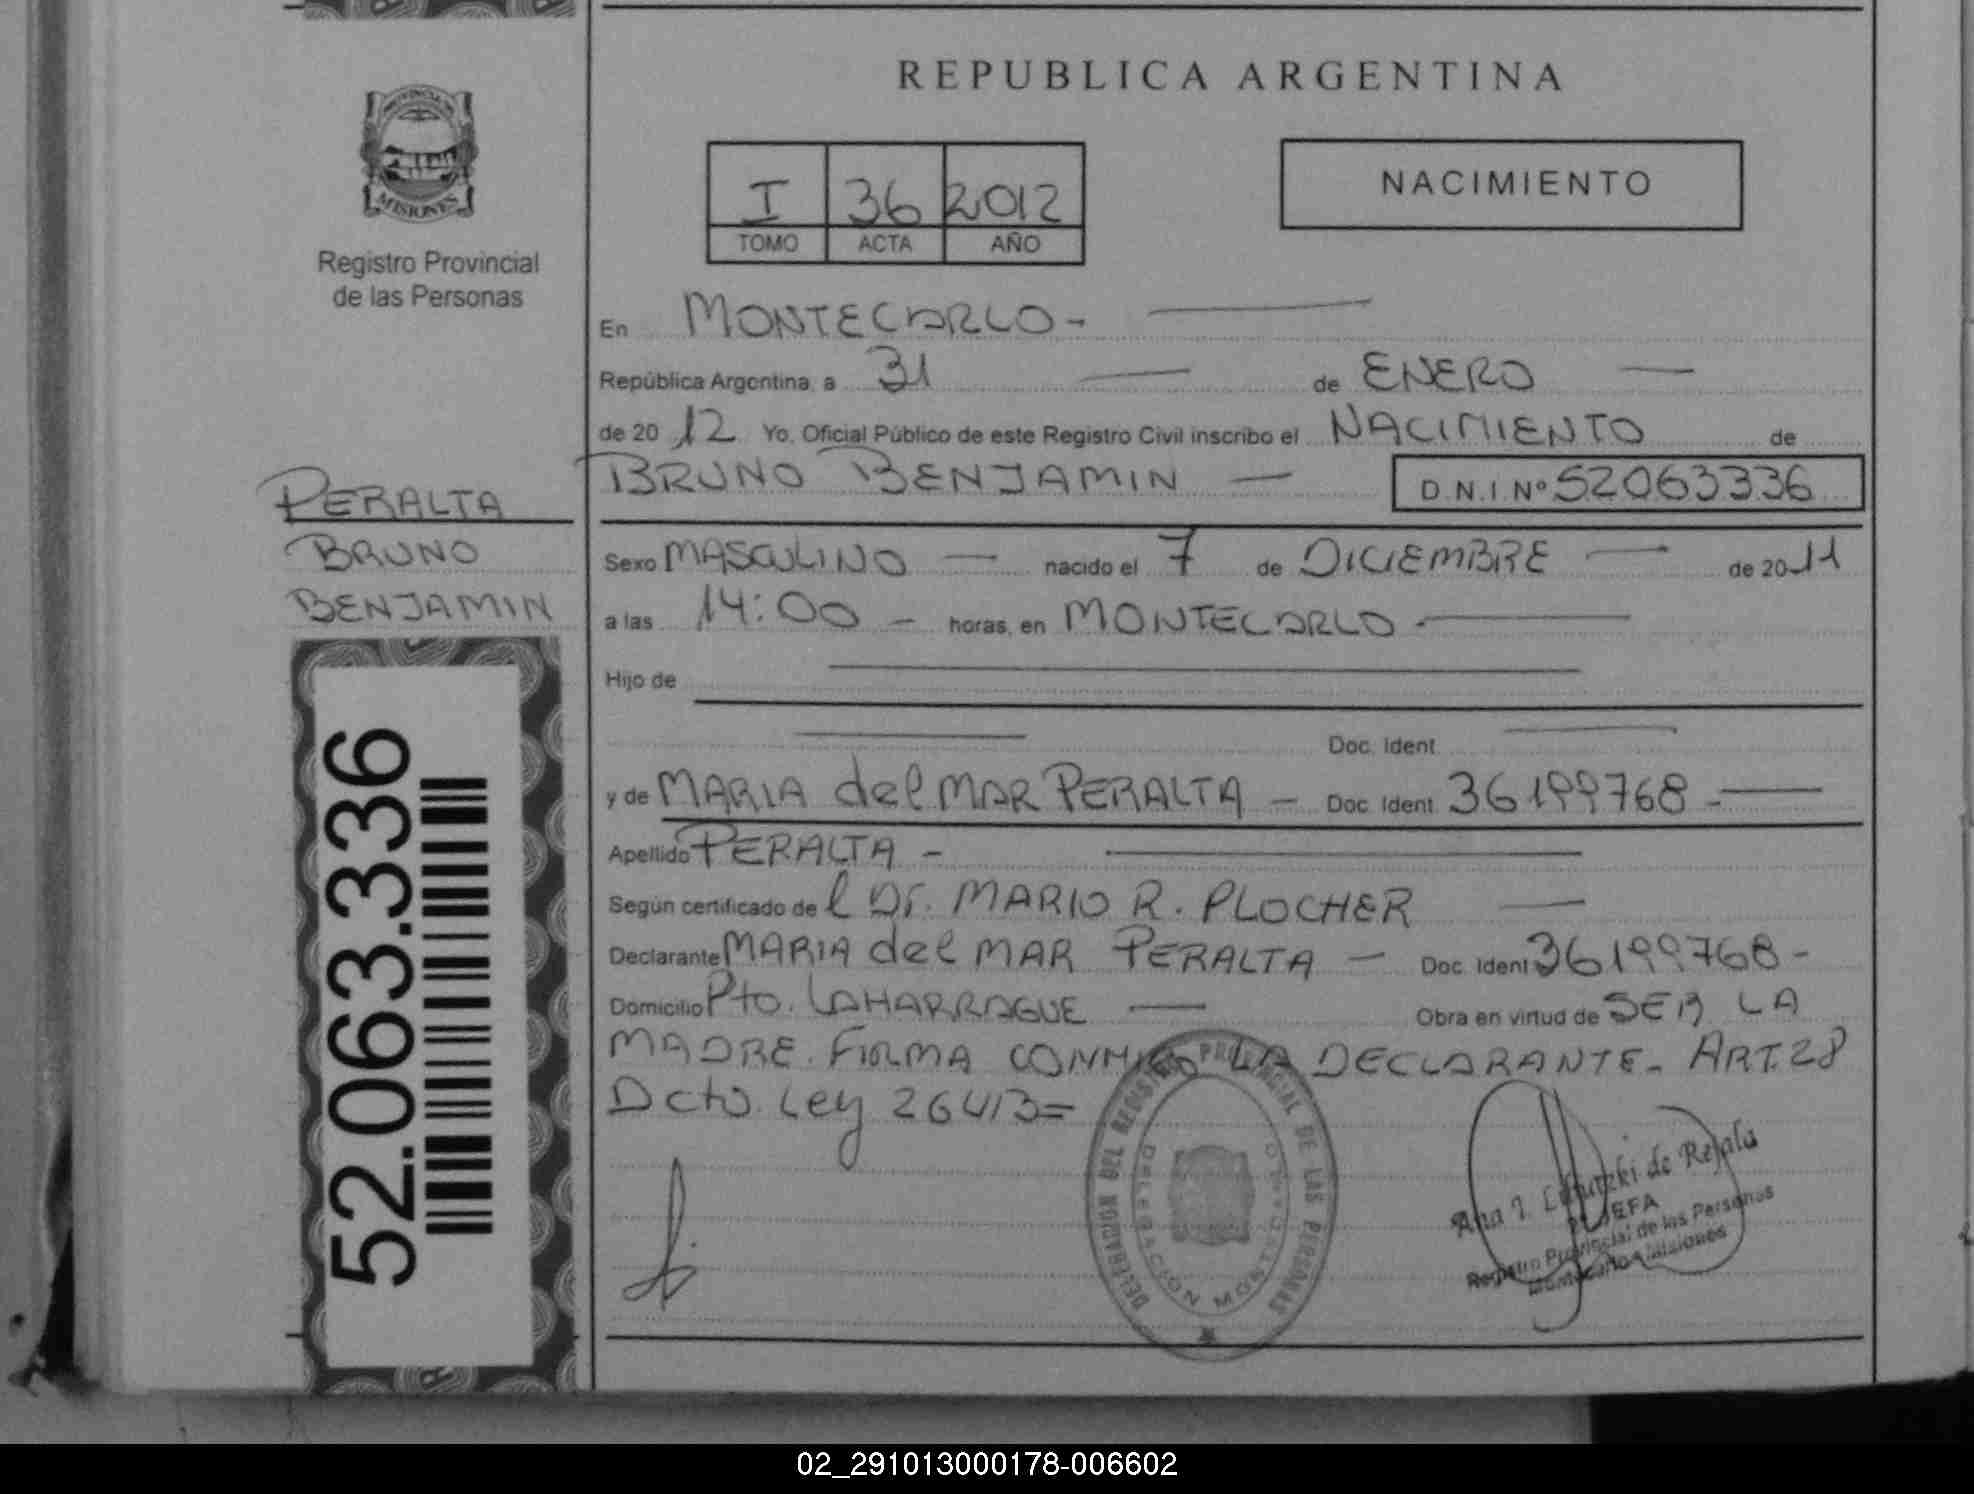 REPUBLICA ARGENTINA
PROVINCIA DE
MISIONES
Registro Provincial
de las Personas
I 36 2012
TOMO ACTA AÑO
NACIMIENTO
En MONTECARLO-
República Argentina, a 31 de ENERO
de 20 12 Yo, Oficial Público de este Registro Civil inscribo el NACIMIENTO de
BRUNO BENJAMIN — D.N.I. Nº 52063336
PERALTA
BRUNO
BENJAMIN
52.063.336
Sexo MASCULINO — nacido el 7 de DICIEMBRE — de 20 11
a las 14:00 — horas, en MONTECARLO.
Hijo de
Doc. Ident.
y de MARIA del MAR PERALTA — Doc. Ident. 36199768-
Apellido PERALTA -
Según certificado de l Dr. MARIO R. PLOCHER
Declarante MARIA del MAR PERALTA — Doc. Ident 36199768-
Domicilio Pto. LAHARRAGUE — Obra en virtud de SER LA
MADRE. FIRMA CONMIGO LA DECLARANTE- ART.28
Dcto. Ley 26413=
DELEGACION DEL REGISTRO PROVINCIAL DE LAS PERSONAS
DELEGACION MONTECARLO
Ana I. de Rejala
JEFA
Registro Provincial de las Personas
Montecarlo - Misiones
02_291013000178-006602